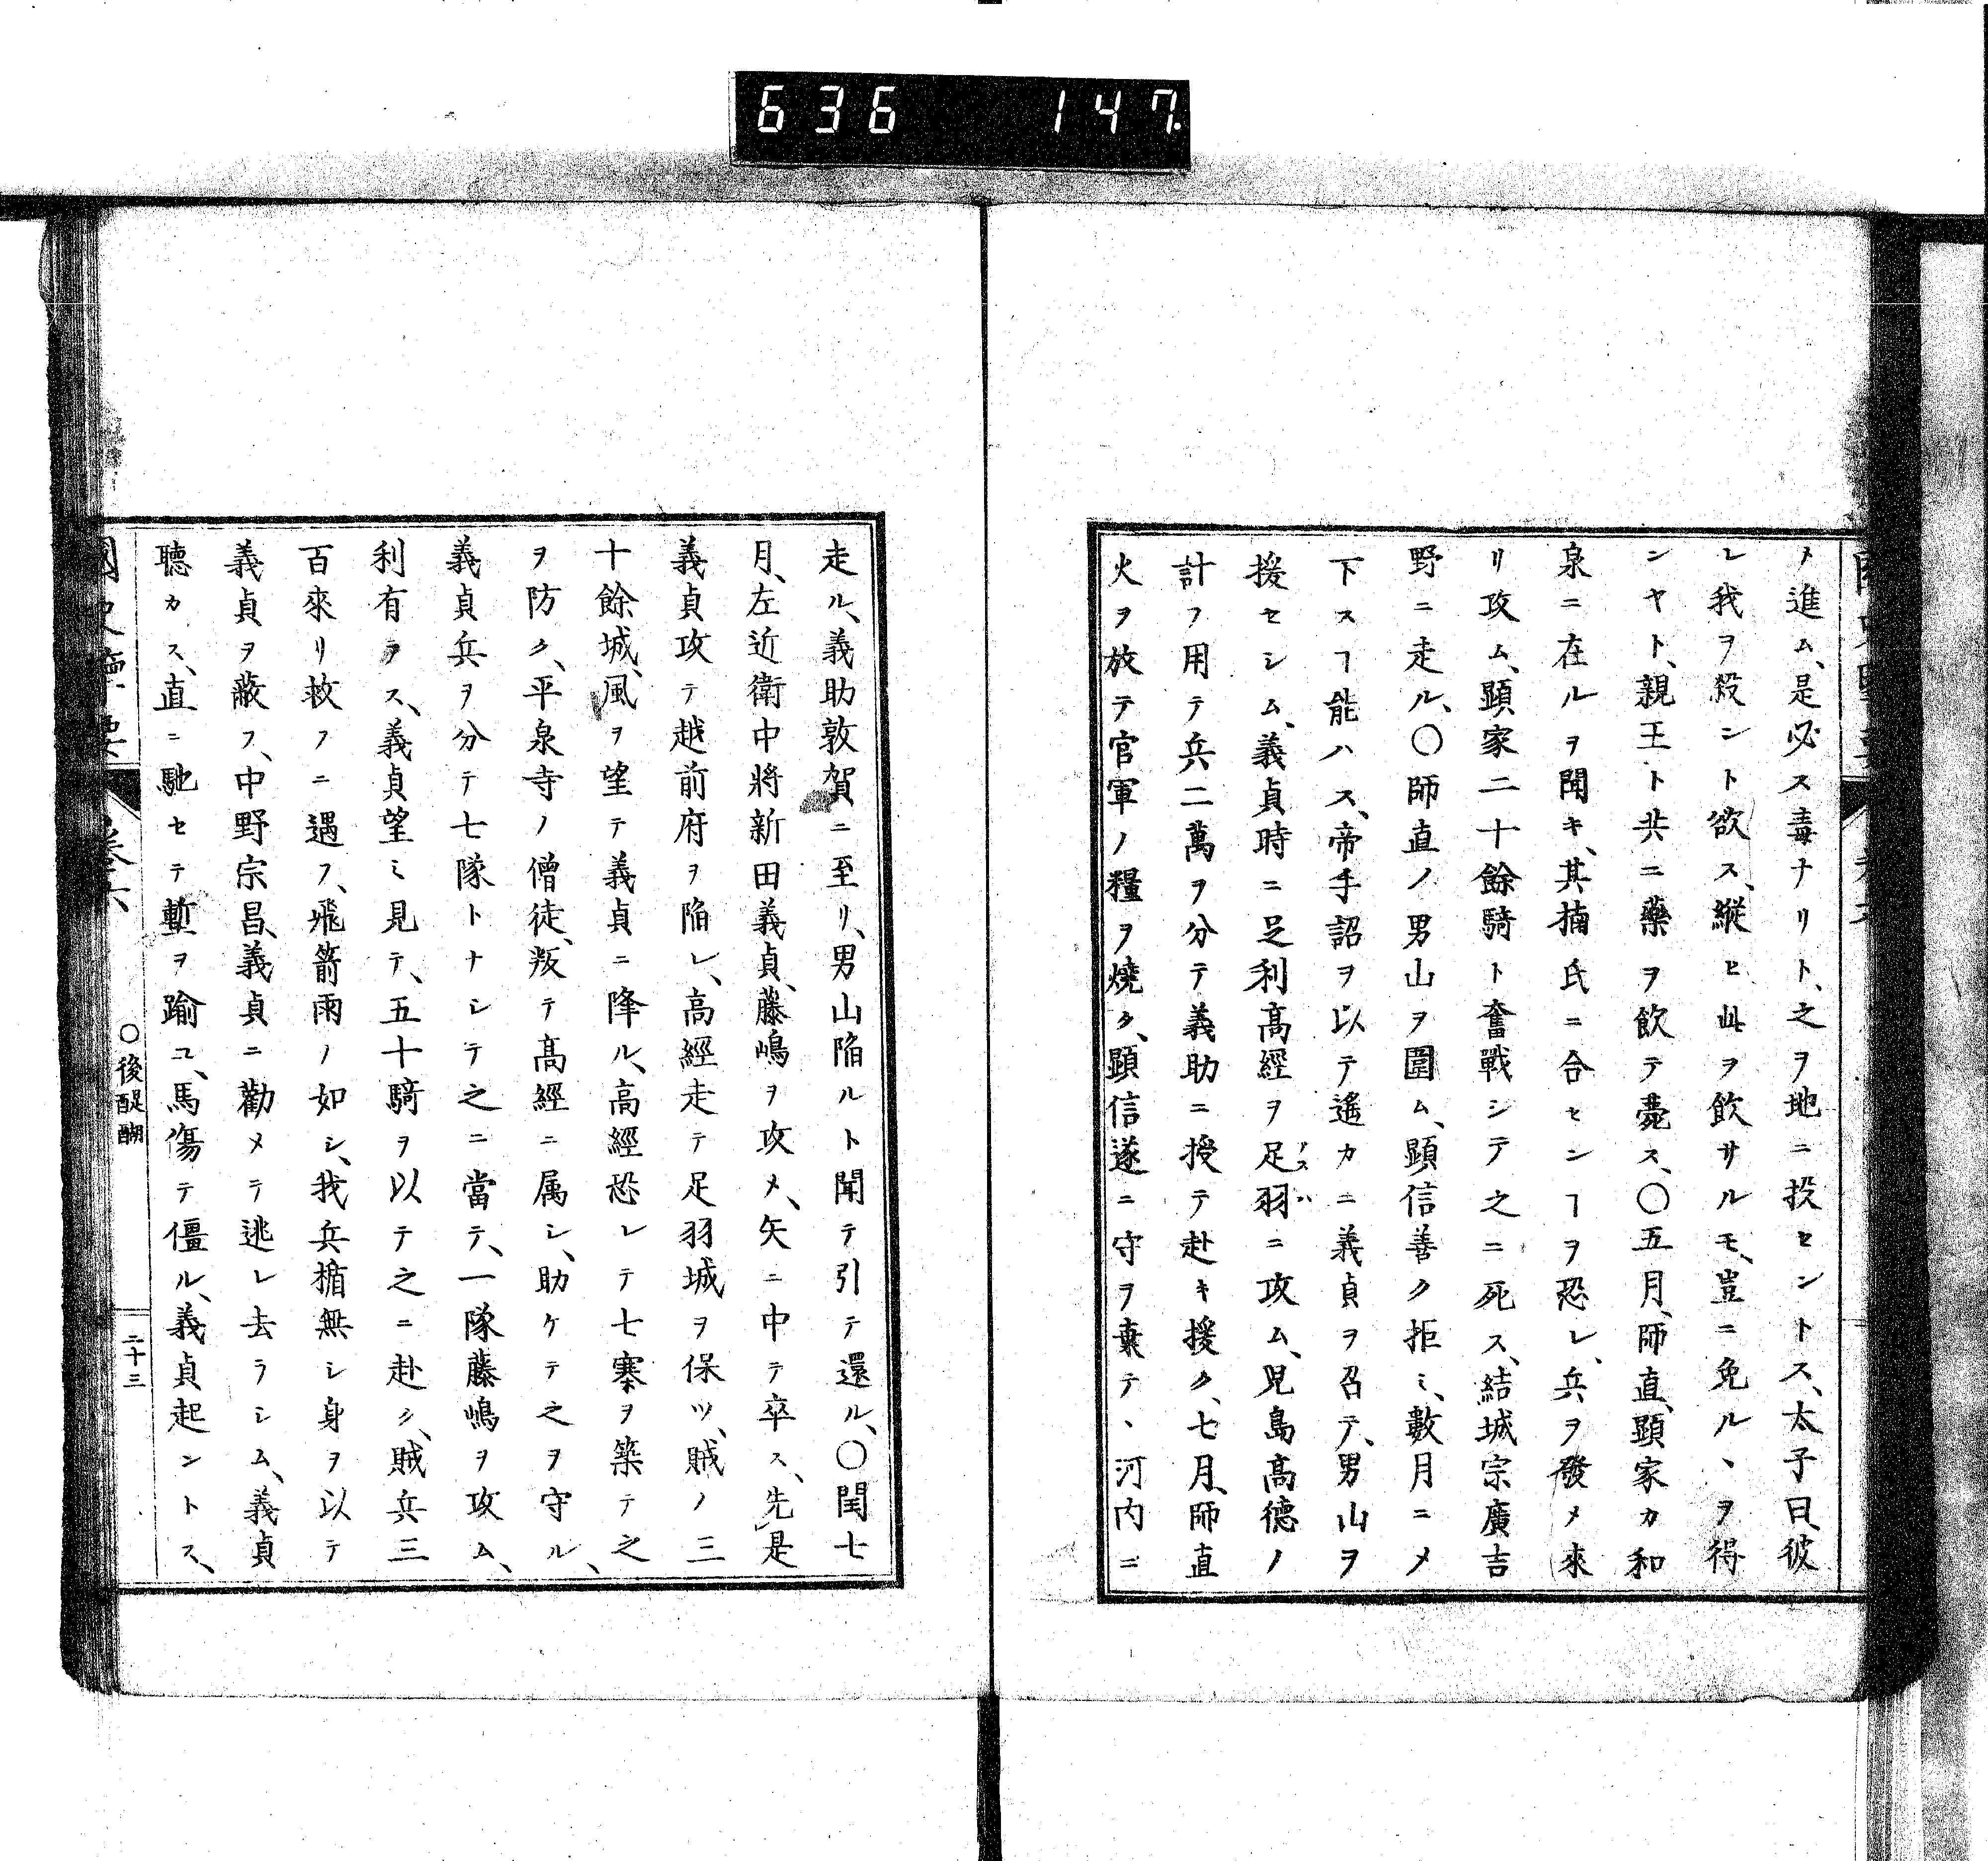 636 147.
ト進ム、是必ス毒ナリト、之ヲ地ニ投セントス、太子曰、彼
レ我ヲ殺ント欲ス、縦ヒ此ヲ飲サルモ、豈ニ免ルヽヲ得
ンヤト、親王ト共ニ藥ヲ飲テ薨ス、〇五月、師直、顕家カ和
泉ニ在ルヲ聞キ、其楠氏ニ合センヿヲ恐レ、兵ヲ發メ來
リ攻ム、顕家二十餘騎ト奮戰シテ之ニ死ス、結城宗廣吉
野ニ走ル、〇師直ノ男山ヲ圍ム、顕信善ク拒ミ、數月ニメ
下スヿ能ハス、帝手詔ヲ以テ遙カニ義貞ヲ召テ、男山ヲ
援セシム、義貞時ニ足利高經ヲ足羽ニ攻ム、児島高德ノ
アスハ
計フ用テ兵二萬ヲ分テ義助ニ授テ赴キ援ク、七月、師直
火ヲ放テ官軍ノ糧ヲ燒ク、顕信遂ニ守ヲ棄テヽ河内ニ
走ル、義助敦賀ニ至リ、男山陥ルト聞テ引テ還ル、〇閏七
月、左近衛中將新田義貞、藤嶋ヲ攻メ、矢ニ中テ卒ス、先是
義貞攻テ越前府ヲ陥レ、高經走テ足羽城ヲ保ツ、賊ノ三
十餘城、風ヲ望テ義貞ニ降ル、高經恐レテ七寨ヲ築テ之
ヲ防ク、平泉寺ノ僧徒、叛テ高經ニ属シ、助ケテ之ヲ守ル、
義貞兵ヲ分テ七隊トナシテ之ニ當テ、一隊藤嶋ヲ攻ム、
利有ラス、義貞望ミ見テ、五十騎ヲ以テ之ニ赴ク、賊兵三
百來リ救フニ遇フ、飛箭雨ノ如シ、我兵楯無シ身ヲ以テ
義貞ヲ蔽フ、中野宗昌、義貞ニ勸メテ逃レ去ラシム、義貞
聴カス、直ニ馳セテ塹ヲ踰ユ、馬傷テ僵ル、義貞起ントス、
國史 要 卷六 〇後醍醐 二十三